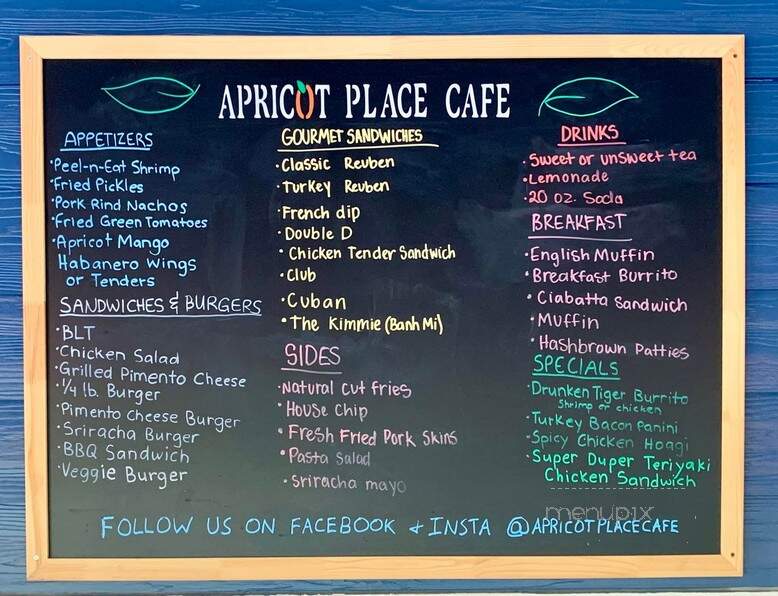 APRICOT PLACE CAFE
APPETIZERS
•Peel-n-Eat Shrimp
•Fried Pickles
•Pork Rind Nachos
•Fried Green Tomatoes
•Apricot Mango
Habanero Wings
or Tenders
SANDWICHES & BURGERS
•BLT
•Chicken Salad
•Grilled Pimento Cheese
•1/4 lb. Burger
•Pimento Cheese Burger
•Sriracha Burger
•BBQ Sandwich
•Veggie Burger
GOURMET SANDWICHES
•Classic Reuben
•Turkey Reuben
•French dip
•Double D
•Chicken Tender Sandwich
•Club
•Cuban
•The Kimmie (Banh Mi)
SIDES
•Natural Cut Fries
•House Chip
•Fresh Fried Pork Skins
•Pasta Salad
•Sriracha mayo
DRINKS
•Sweet or unsweet tea
•Lemonade
•20 oz. Soda
BREAKFAST
•English Muffin
•Breakfast Burrito
•Ciabatta Sandwich
•Muffin
•Hashbrown Patties
SPECIALS
•Drunken Tiger Burrito
Shrimp or chicken
•Turkey Bacon Panini
•Spicy Chicken Hoagi
•Super Duper Teriyaki
Chicken Sandwich
FOLLOW US ON FACEBOOK & INSTA @APRICOTPLACECAFE
menupix